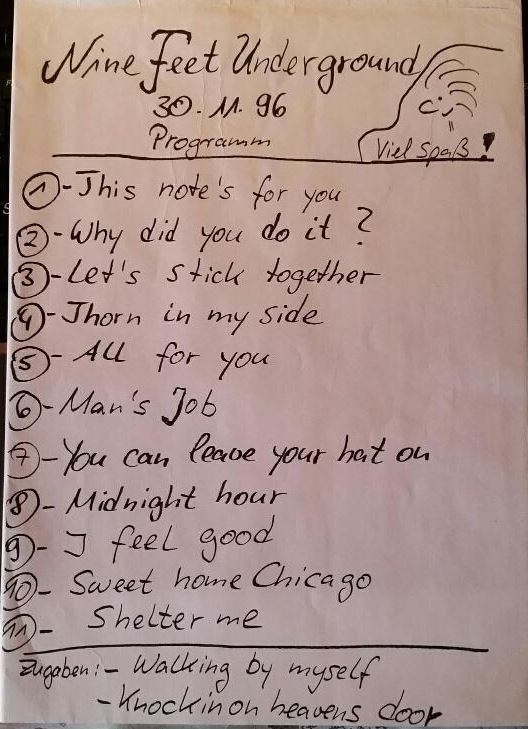 Nine Feet Underground
30.11.96
Programm
Viel Spaß!
1 - This note's for you
2 - Why did you do it?
3 - Let's stick together
4 - Thorn in my side
5 - All for you
6 - Man's Job
7 - You can leave your hat on
8 - Midnight hour
9 - I feel good
10 - Sweet home Chicago
11 - Shelter me
Zugaben: - Walking by myself
- Knockin on heavens door